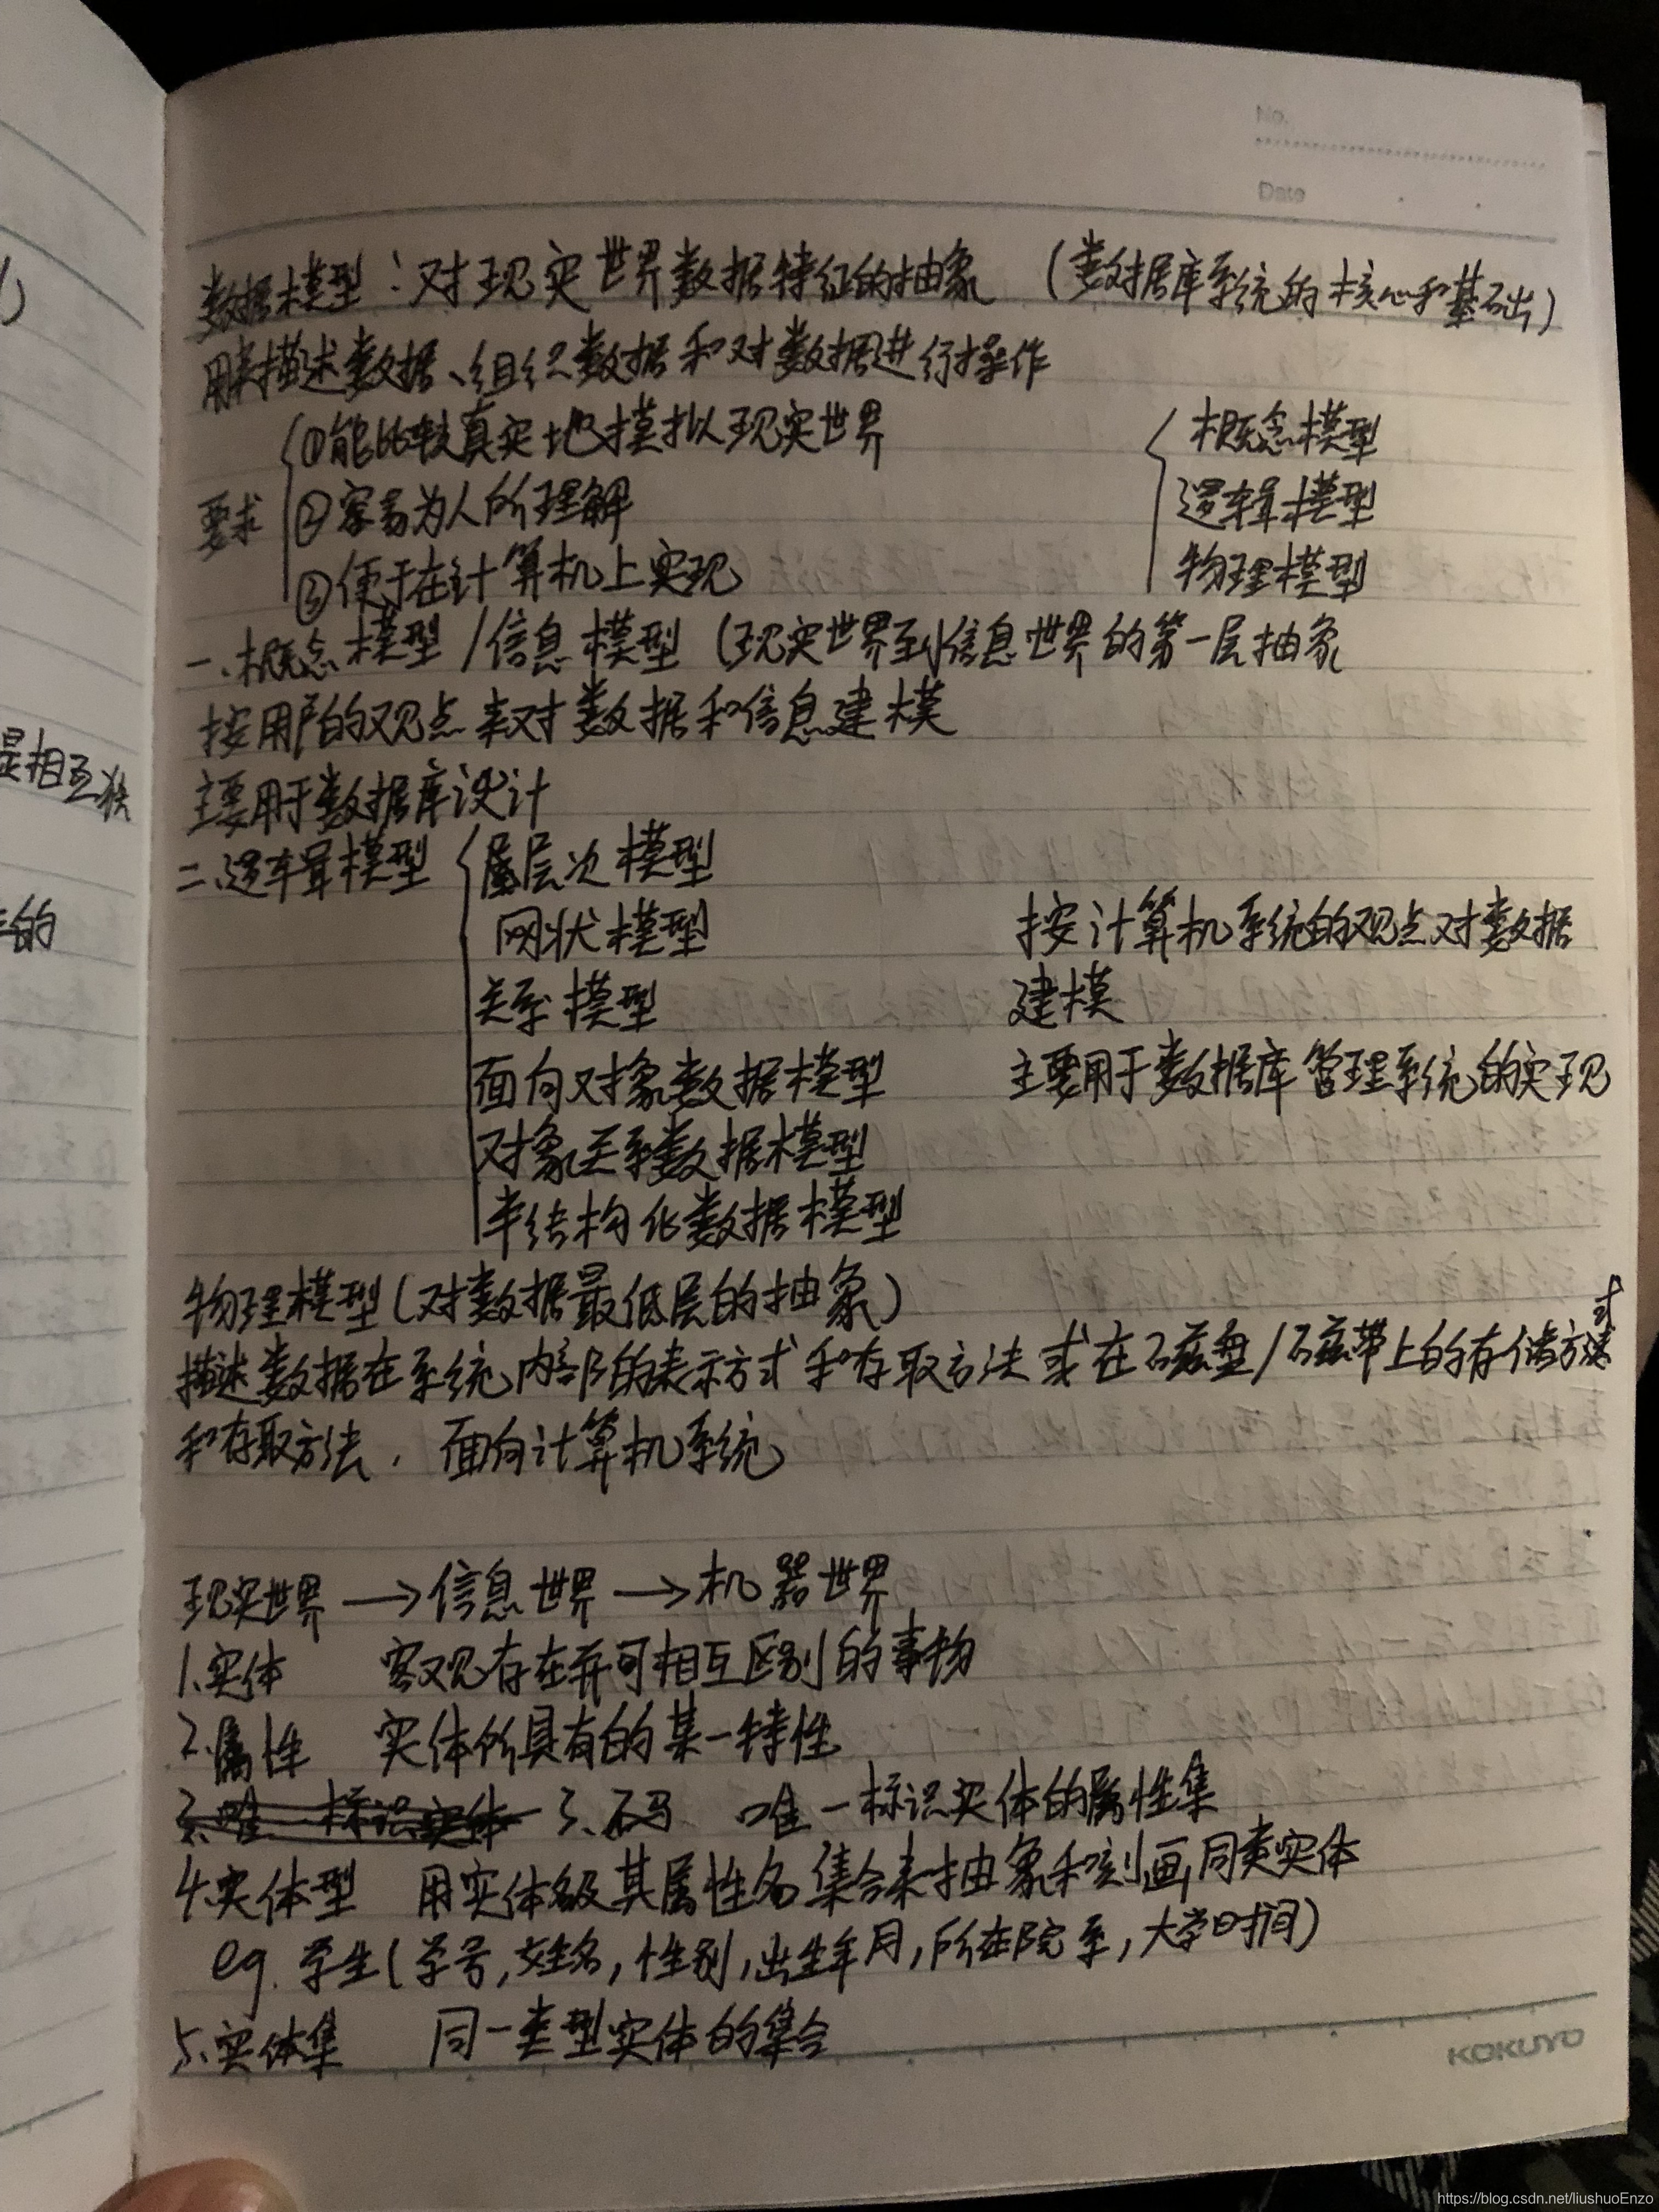 No.
Date
数据模型：对现实世界数据特征的抽象 （数据库系统的核心和基础）
用来描述数据、组织数据和对数据进行操作
要求
①能比较真实地模拟现实世界
②容易为人所理解
③便于在计算机上实现
概念模型
逻辑模型
物理模型
一、概念模型/信息模型（现实世界到信息世界的第一层抽象
按用户的观点来对数据和信息建模
主要用于数据库设计
二、逻辑模型
层次模型
网状模型
关系模型
面向对象数据模型
对象关系数据模型
半结构化数据模型
按计算机系统的观点对数据
建模
主要用于数据库管理系统的实现
物理模型（对数据最低层的抽象）
描述数据在系统内部的表示方式和存取方法或在磁盘/磁带上的存储方式
和存取方法，面向计算机系统
现实世界→信息世界→机器世界
1、实体 客观存在并可相互区别的事物
2、属性 实体所具有的某一特性
3、唯一标识实体 3、码 唯一标识实体的属性集
4、实体型 用实体名及其属性名集合来抽象和刻画同类实体
eg. 学生(学号,姓名,性别,出生年月,所在院系,大学时间)
5、实体集 同一类型实体的集合
是相互独
的
KOKUYO
https://blog.csdn.net/liushuoEnzo